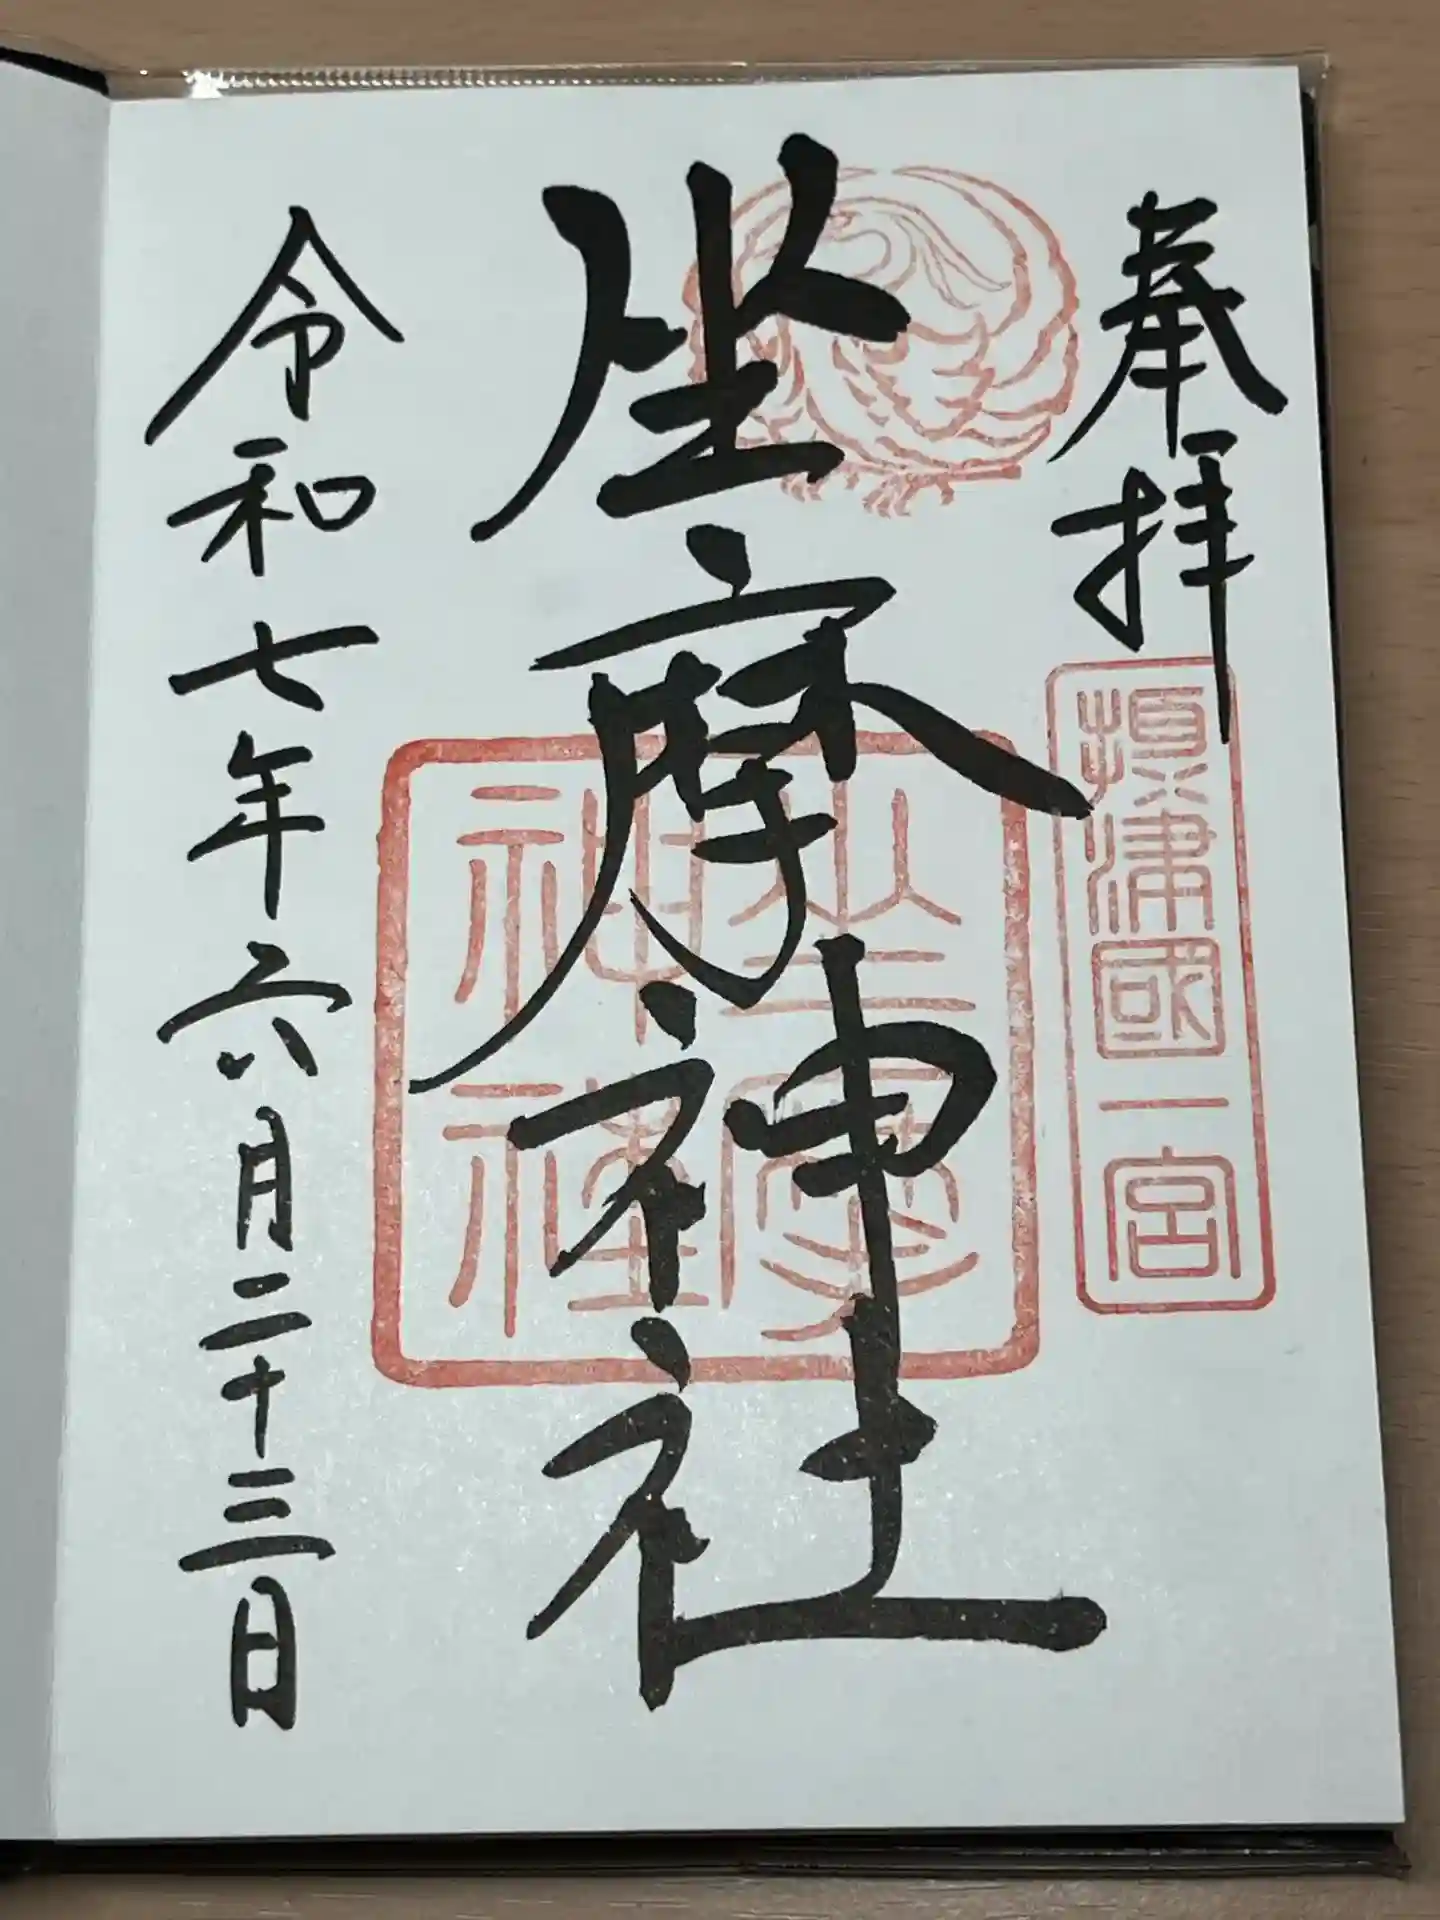 奉拝
摂津國一宮
坐摩神社
坐摩
神社
令和七年六月二十三日